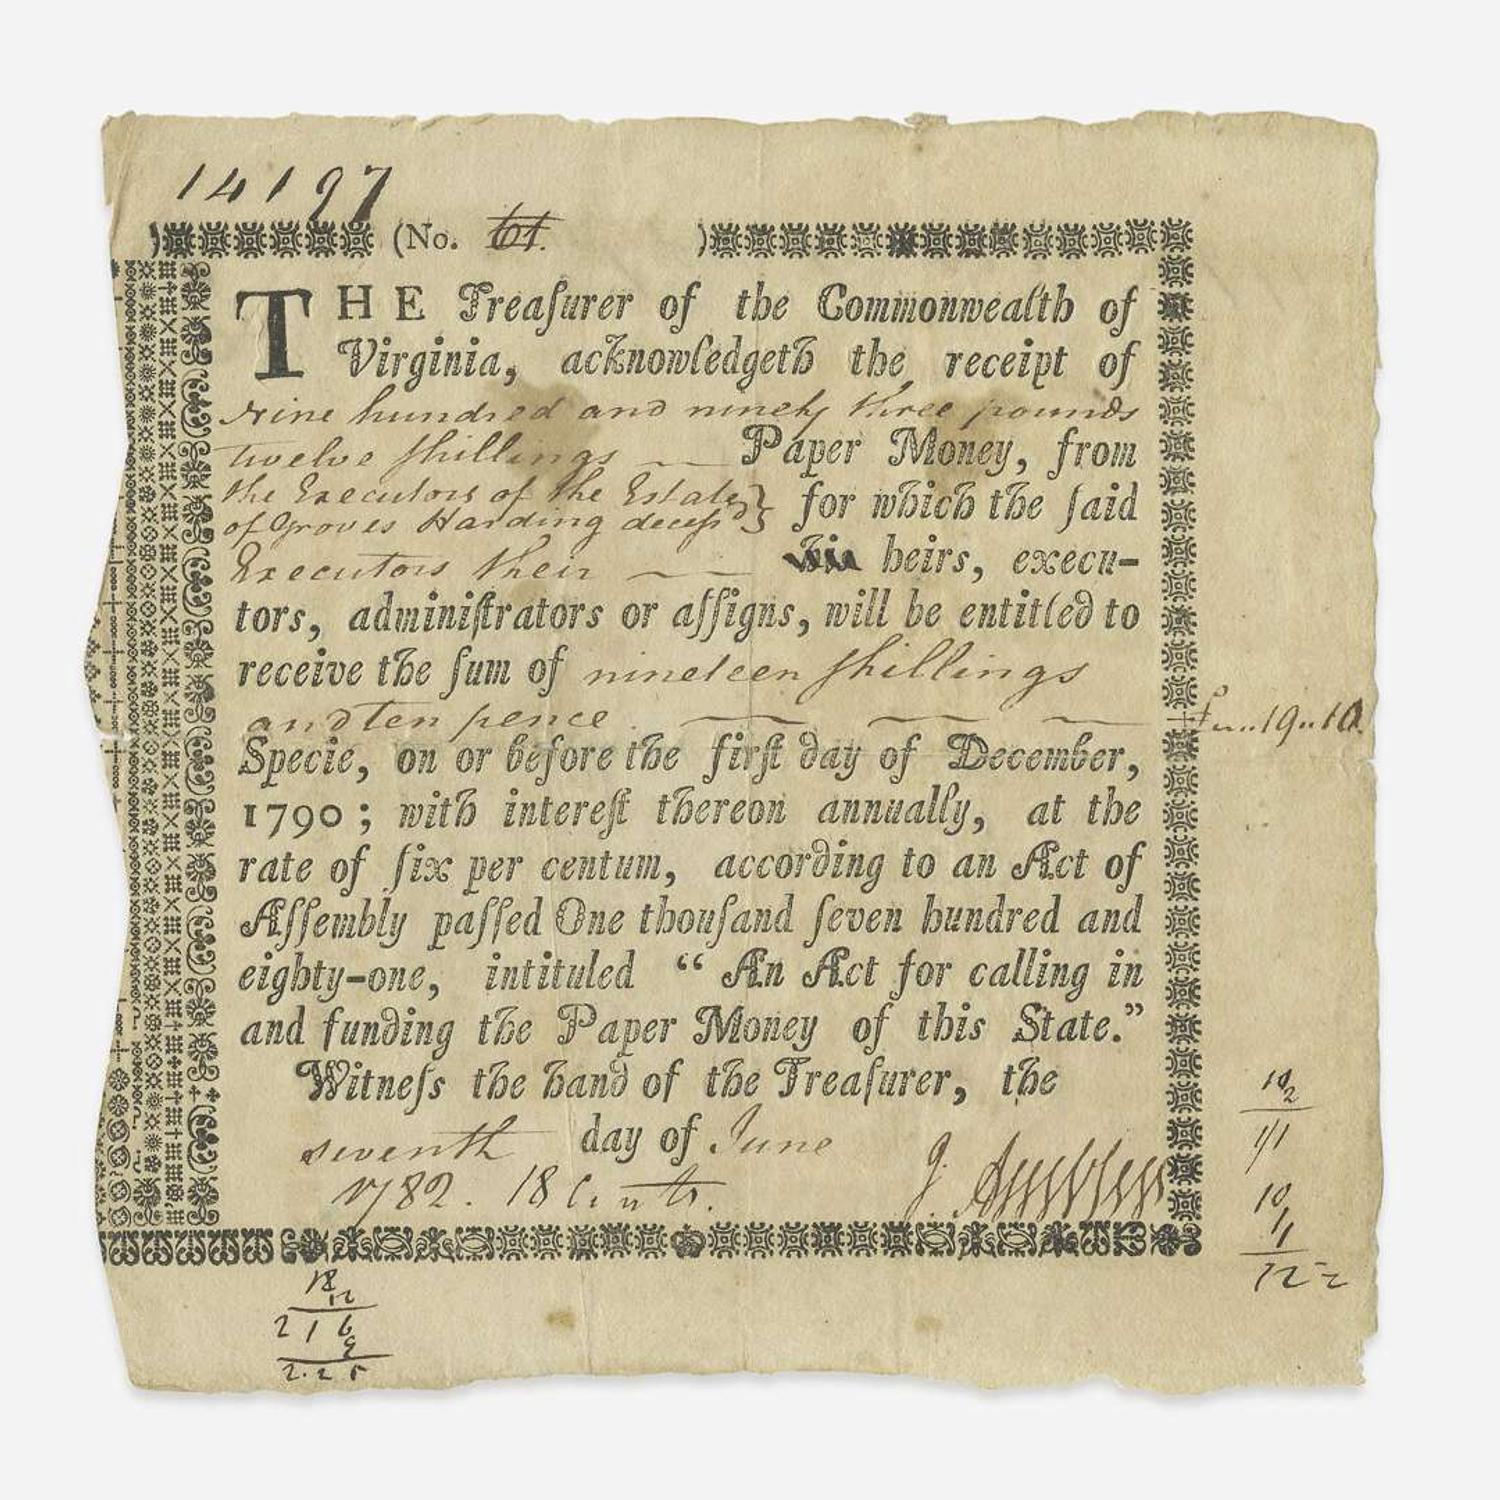 14197
(No. 61. )
THE Treaſurer of the Commonwealth of
Virginia, acknowledgeth the receipt of
Nine hundred and ninety three pounds
twelve ſhillings — Paper Money, from
the Executors of the Estate
of Groves Harding decesd } for which the ſaid
Executors their — his heirs, execu-
tors, adminiſtrators or aſſigns, will be entitled to
receive the ſum of nineteen ſhillings
and ten pence
19 . 10
Specie, on or before the firſt day of December,
1790 ; with intereſt thereon annually, at the
rate of ſix per centum, according to an Act of
Aſſembly paſſed One thouſand ſeven hundred and
eighty-one, intituled “ An Act for calling in
and funding the Paper Money of this State.”
Witneſs the hand of the Treaſurer, the
seventh day of June
1782. 18 Cents. J.
10
2
1/1
10
1/1
12 - 2
18
12
216
9
2.25